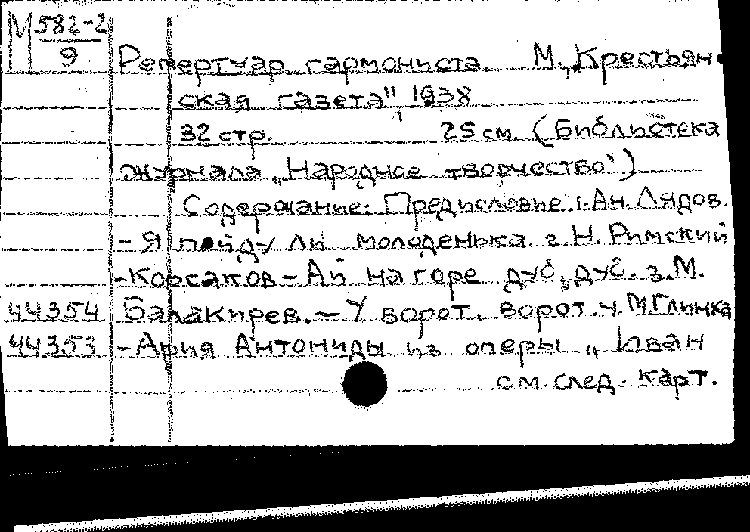 М 582-2
9
Репертуар гармониста М. „Крестьян-
ская газета", 1938
32 стр. 25 см. (Библиотека
журнала „Народное творчество")
Содержание: Предисловие. 1. Ан. Лядов.
- Я пойду ли молоденька. 2. Н. Римский
-Корсаков - Ай на горе дуб, дуб. 3. М.
44354 Балакирев. - У ворот, ворот. 4. М. Глинка
44353 - Ария Антониды из оперы „Иван
см. след. карт.